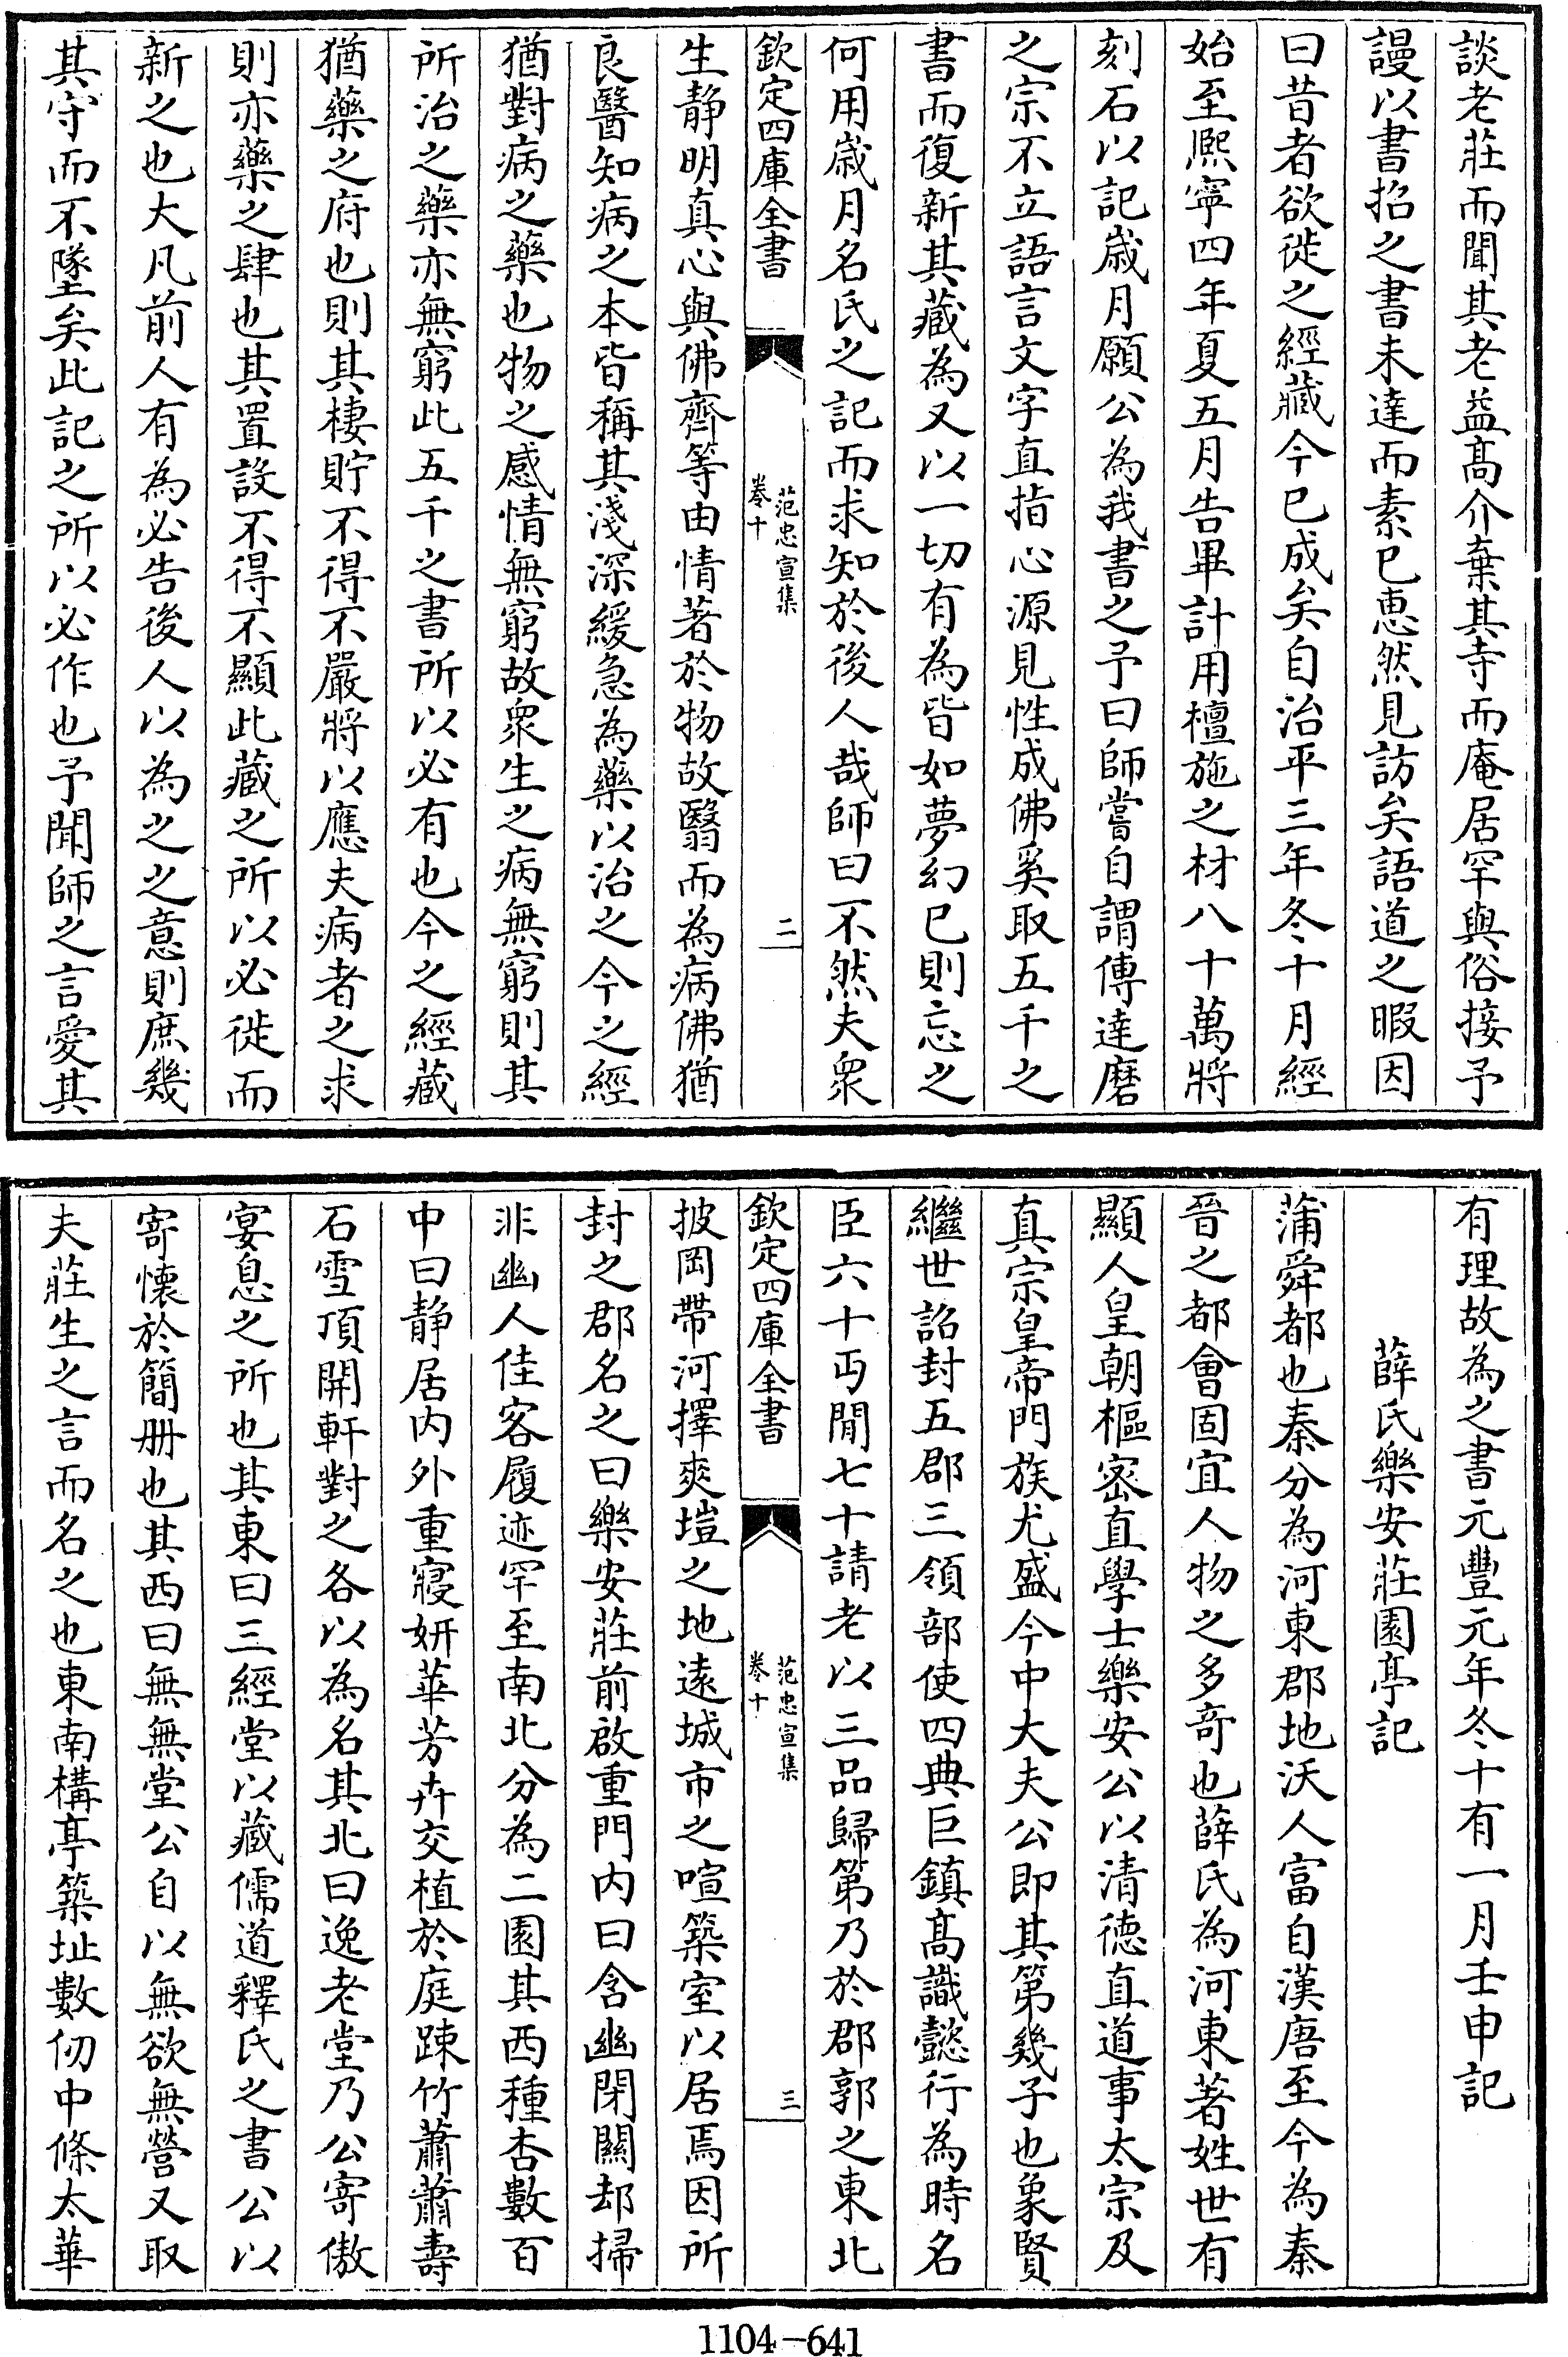 談老莊而聞其老益髙介棄其寺而庵居罕與俗接予
謾以書招之書未達而素已惠然見訪矣語道之暇因
曰昔者欲徙之經藏今已成矣自治平三年冬十月經
始至熙寧四年夏五月告畢計用檀施之材八十萬將
刻石以記歳月願公為我書之予曰師嘗自謂傳達磨
之宗不立語言文字直指心源見性成佛奚取五千之
書而復新其藏為又以一切有為皆如夢幻已則忘之
何用歳月名氏之記而求知於後人哉師曰不然夫衆
欽定四庫全書
范忠宣集
卷十
二
生静明真心與佛齊等由情著於物故翳而為病佛猶
良醫知病之本皆稱其淺深緩急為藥以治之今之經
猶對病之藥也物之感情無窮故衆生之病無窮則其
所治之藥亦無窮此五千之書所以必有也今之經藏
猶藥之府也則其棲貯不得不嚴將以應夫病者之求
則亦藥之肆也其置設不得不顯此藏之所以必徙而
新之也大凡前人有為必告後人以為之之意則庶幾
其守而不墜矣此記之所以必作也予聞師之言愛其
有理故為之書元豐元年冬十有一月壬申記
薛氏樂安莊園亭記
蒲舜都也秦分為河東郡地沃人富自漢唐至今為秦
晉之都會固宜人物之多竒也薛氏為河東著姓世有
顯人皇朝樞宻直學士樂安公以清德直道事太宗及
真宗皇帝門族尤盛今中大夫公即其第幾子也象賢
繼世詔封五郡三領部使四典巨鎮髙識懿行為時名
臣六十丐閒七十請老以三品歸第乃於郡郭之東北
欽定四庫全書
范忠宣集
卷十
三
披岡帶河擇爽塏之地逺城市之喧築室以居焉因所
封之郡名之曰樂安莊前啟重門内曰含幽閉關却掃
非幽人佳客履迹罕至南北分為二園其西種杏數百
中曰静居内外重寢妍華芳卉交植於庭踈竹蕭蕭壽
石雪頂開軒對之各以為名其北曰逸老堂乃公寄傲
宴息之所也其東曰三經堂以藏儒道釋氏之書公以
寄懷於簡册也其西曰無無堂公自以無欲無營又取
夫莊生之言而名之也東南構亭築址數仞中條太華
1104-641